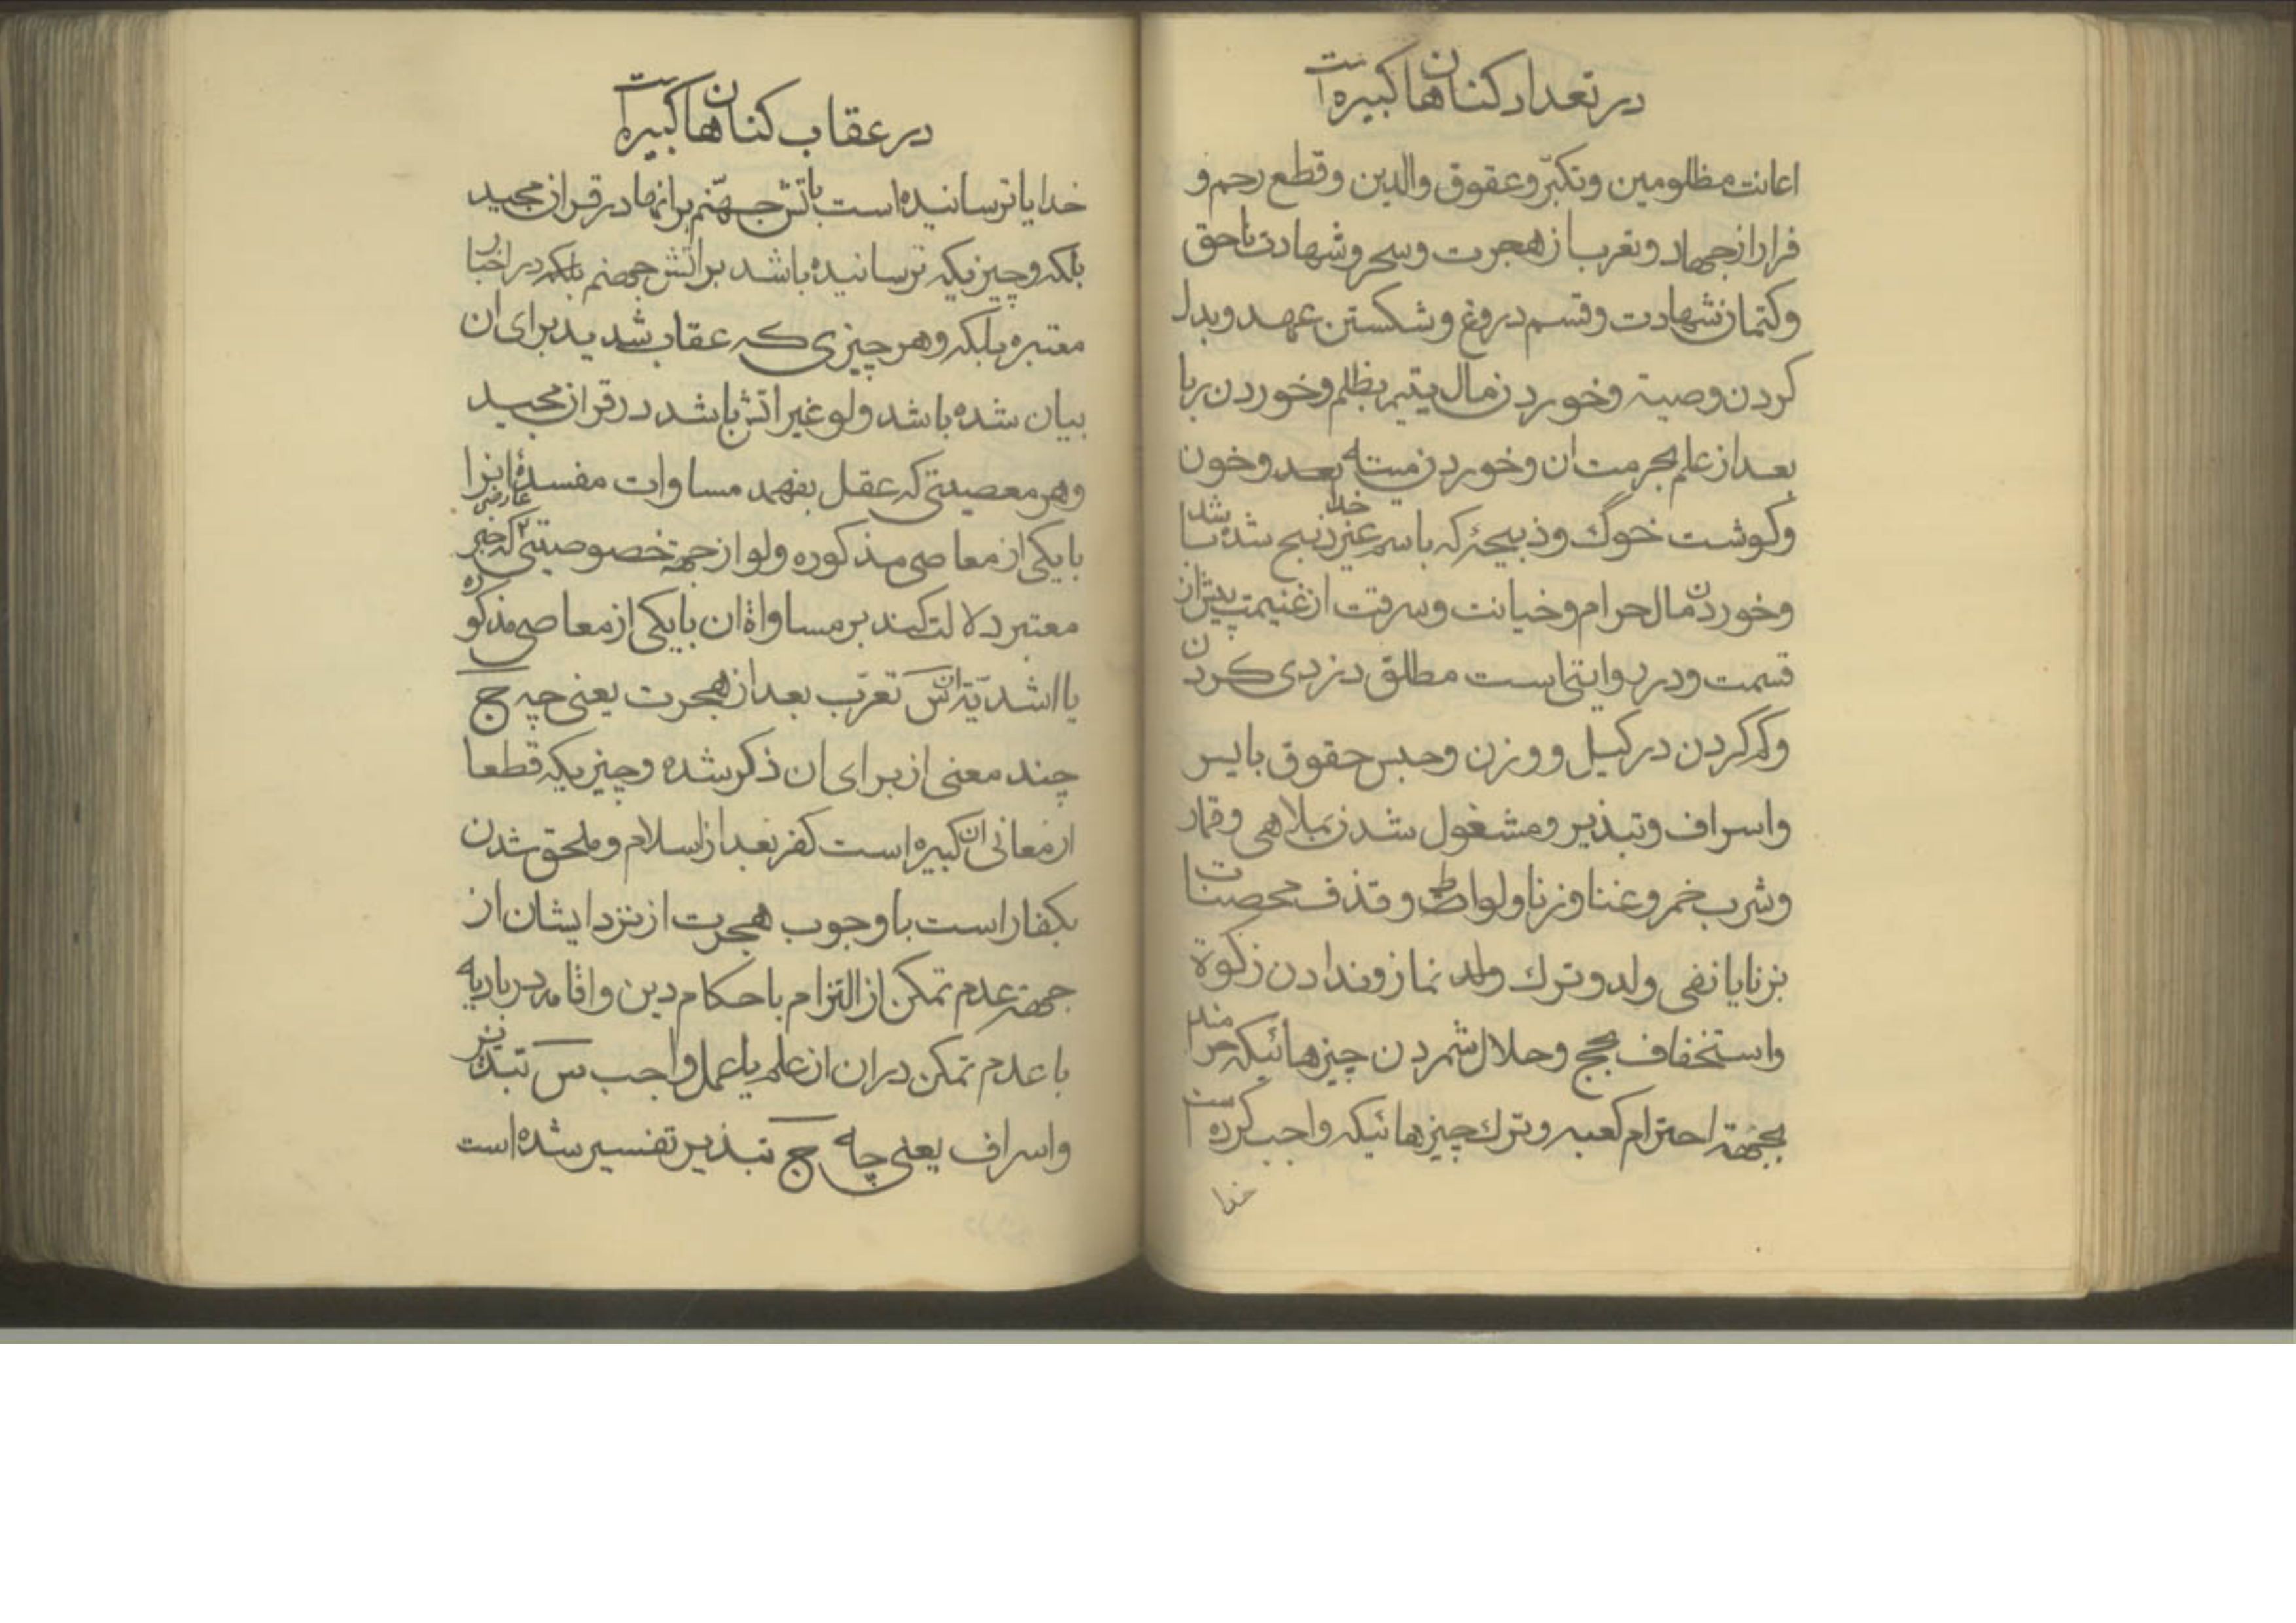 در تعداد کناهان کبیره است
اعانت مظلومین و تکبّر و عقوق والدین و قطع رحم و
فرار از جهاد و تعرب از هجرت و سحر و شهادت ناحق
و کتمان شهادت و قسم دروغ و شکستن عهد و بدل
کردن وصیة و خوردن مال یتیم بظلم و خوردن ربا
بعد از علم بحرمت ان و خوردن میته و خون
و کوشت خوک و ذبیحهٔ که باسم غیر خدا ذبح شده باشد
و خوردن مال حرام و خیانت و سرقت از غنیمت پیش از
قسمت و در روایتی است مطلق دزدی کردن
و کم کردن در کیل و وزن و حبس حقوق
و اسراف و تبذیر و مشغول شدن بملاهی و قمار
و شرب خمر و غنا و زنا و لواط و قذف محصنات
بزنا یا نفی ولد و ترک نماز و ندادن زکوة
و استخفاف بحج و حلال شمردن چیزهائیکه حرامند
بجهة احترام کعبه و ترک چیزهائیکه واجب کرده است
خدا
در عقاب کناهان کبیره است
خدا یا ترسانیده است باتش جهنّم برانها در قران مجید
بلکه و چیزیکه ترسانیده باشد بر اتش جهنم در اخبار
معتبره بلکه و هر چیزی که عقاب شدید برای ان
بیان شده باشد ولو غیر اتش باشد در قران مجید
و هر معصیتی که عقل بفهمد مساوات مفسدهٔ انرا
با یکی از معاصی مذکوره ولو از جهة خصوصیتی عارضی که خبر
معتبر دلالت کند بر مساواة ان با یکی از معاصی مذکوره
یا اشدّیّة ان س تعرّب بعد از هجرت یعنی چه ج
چند معنی از برای ان ذکر شده و چیزیکه قطعا
از معانی ان کبیره است کفر بعد از اسلام و ملحق شدن
بکفار است با وجوب هجرت از نزد ایشان از
جهة عدم تمکن از التزام باحکام دین و اقامه در بادیه
با عدم تمکن در ان از علم یا عمل واجب س تبذیر
و اسراف یعنی چه ج تبذیر تفسیر شده است